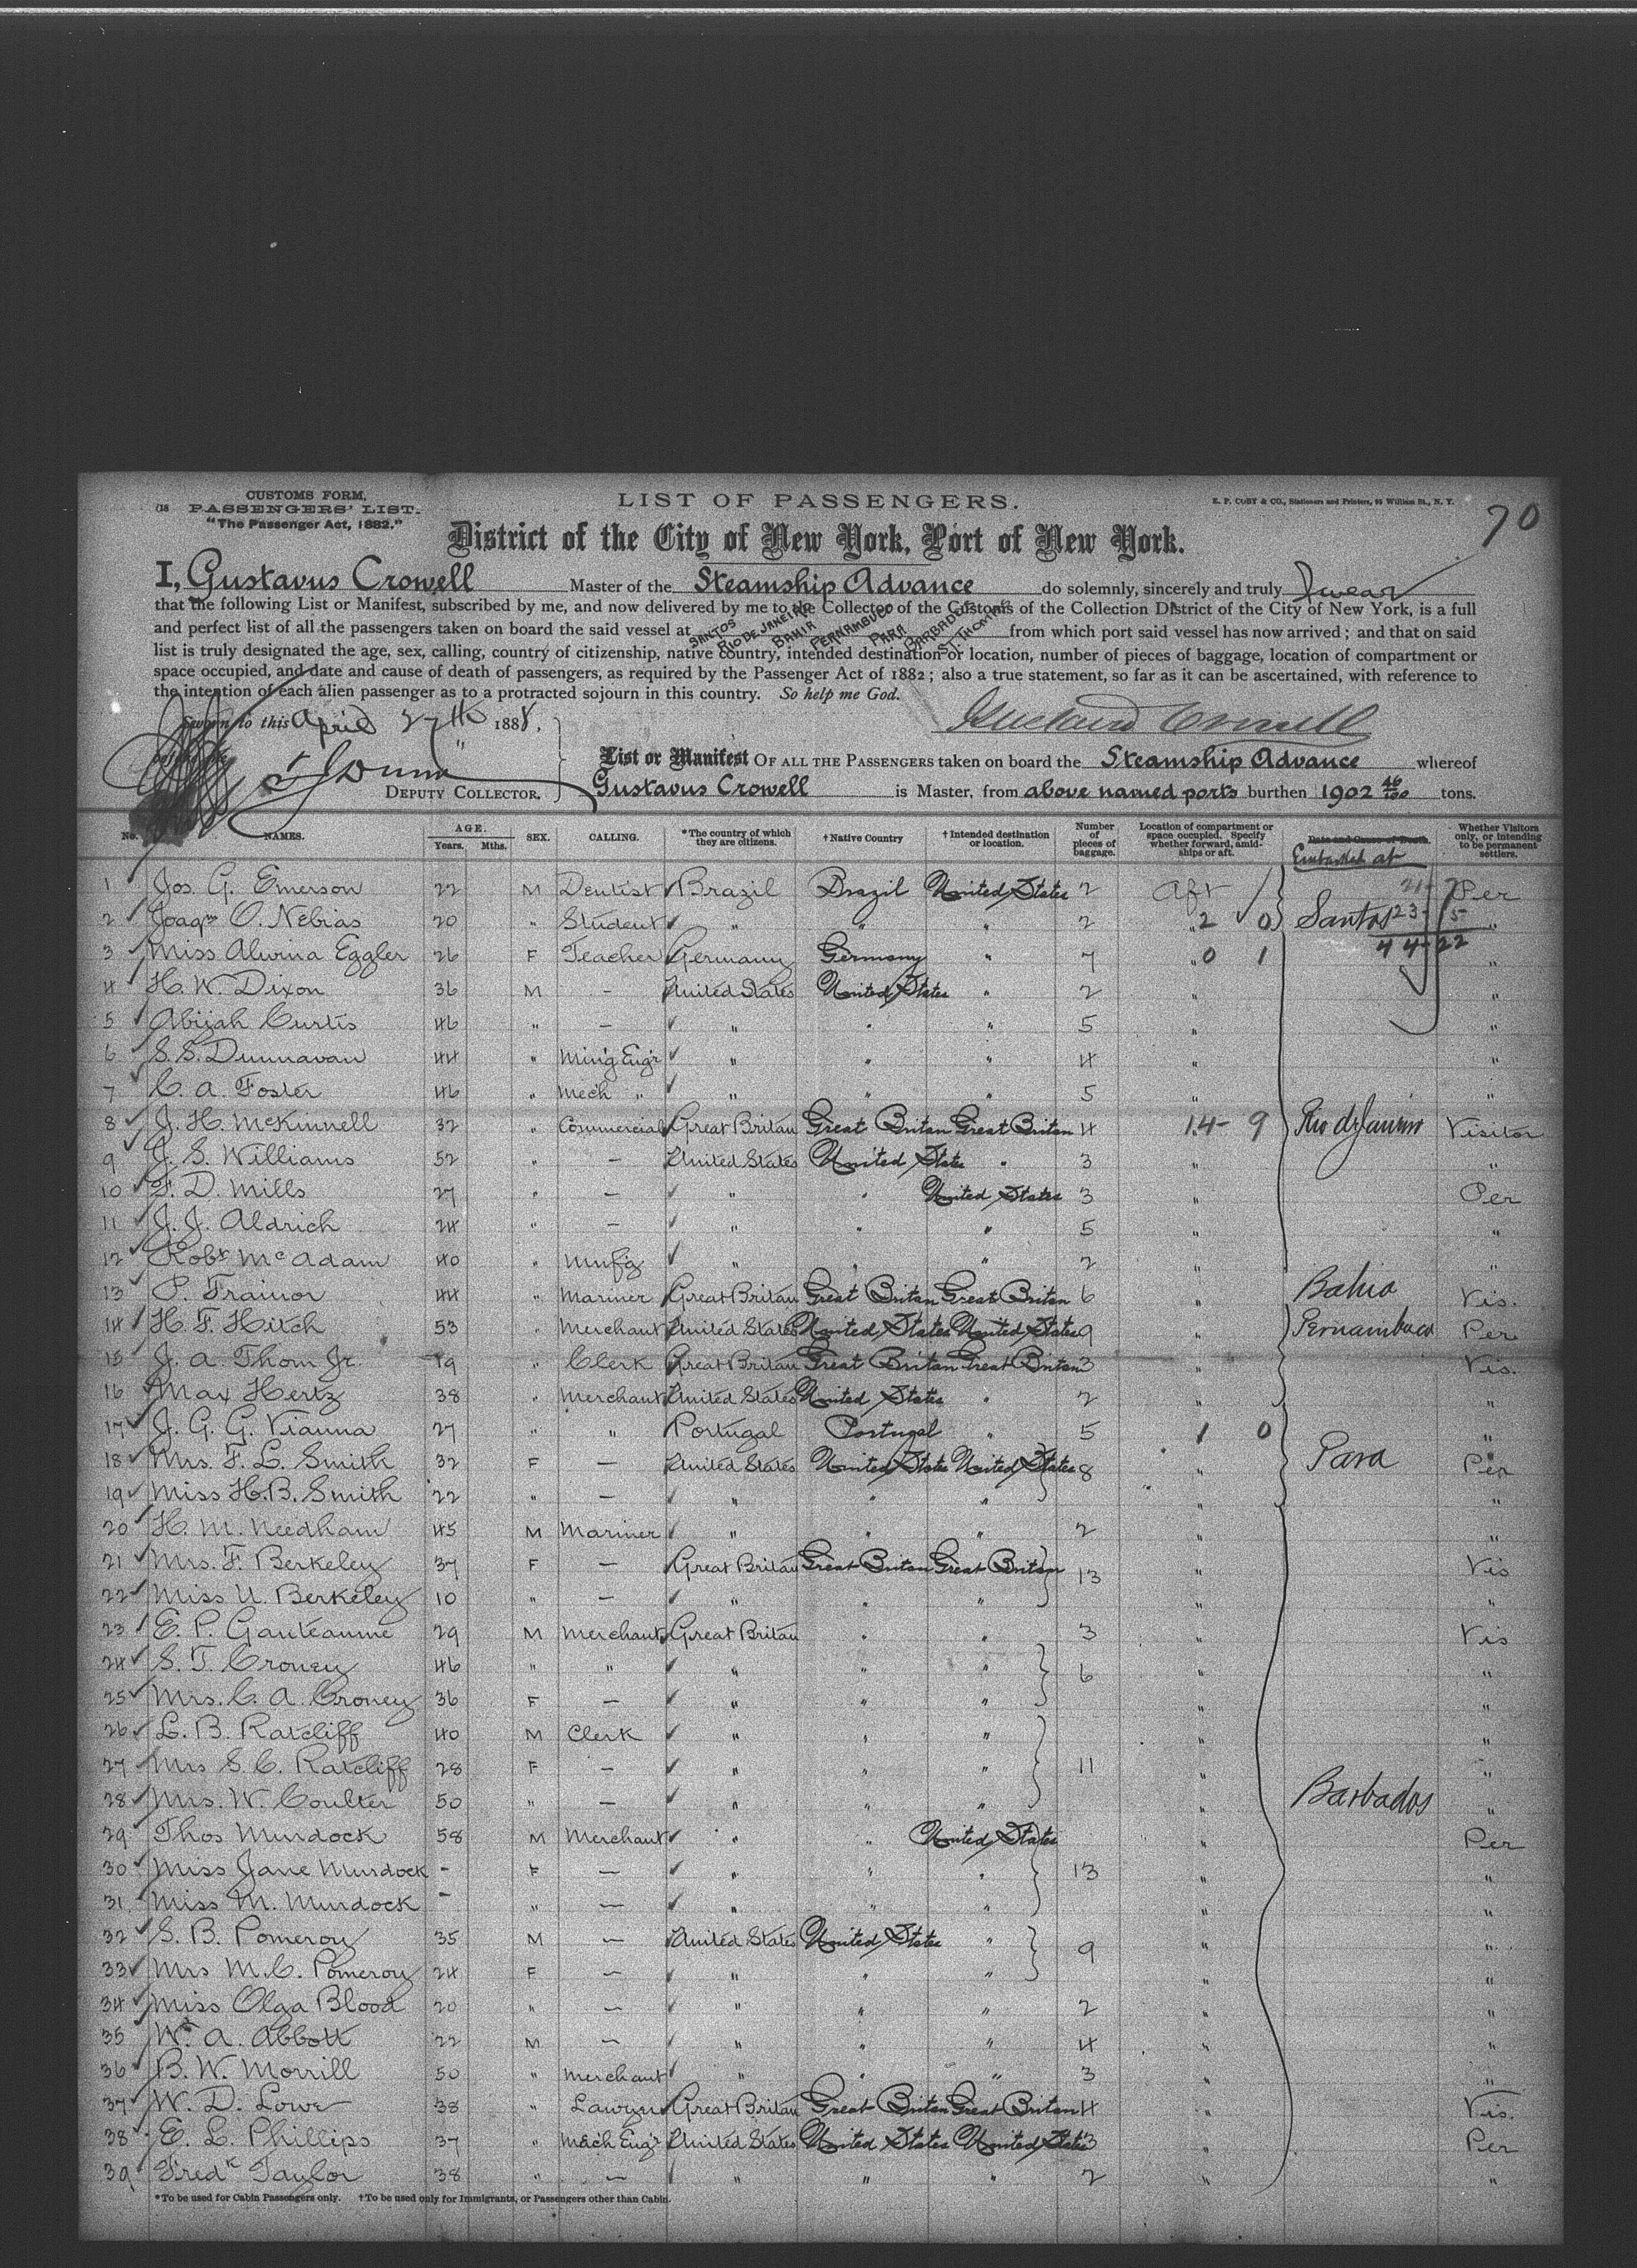 CUSTOMS FORM,
PASSENGERS' LIST.
"The Passenger Act, 1882."
LIST OF PASSENGERS.
E. P. COBY & CO., Stationers and Printers, 93 William St., N. Y.
70
District of the City of New York, Port of New York.
I, Gustavus Crowell Master of the Steamship Advance do solemnly, sincerely and truly swear
that the following List or Manifest, subscribed by me, and now delivered by me to the Collector of the Customs of the Collection District of the City of New York, is a full
and perfect list of all the passengers taken on board the said vessel at SANTOS RIO DE JANEIRO BAHIA PERNAMBUCO PARA BARBADOES ST THOMAS from which port said vessel has now arrived; and that on said
list is truly designated the age, sex, calling, country of citizenship, native country, intended destination or location, number of pieces of baggage, location of compartment or
space occupied, and date and cause of death of passengers, as required by the Passenger Act of 1882; also a true statement, so far as it can be ascertained, with reference to
the intention of each alien passenger as to a protracted sojourn in this country. So help me God.
Sworn to this April 27th 1888. Gustavus Crowell
List or Manifest OF ALL THE PASSENGERS taken on board the Steamship Advance whereof
DEPUTY COLLECTOR. Gustavus Crowell is Master, from above named ports burthen 1902 46/100 tons.
No. NAMES. AGE. Years. Mths. SEX. CALLING. *The country of which they are citizens. †Native Country †Intended destination or location. Number of pieces of baggage. Location of compartment or space occupied. Specify whether forward, amidships or aft. Date and Cause of Death. Embarked at Whether Visitors only, or intending to be permanent settlers.
1 Jos. G. Emerson 22 M Dentist Brazil Brazil United States 2 Aft 21 Per
2 Joaqm O. Nebias 20 " Student " " " 2 " 2 0 Santos 23 5 "
3 Miss Alwina Eggler 26 F Teacher Germany Germany " 7 " 0 1 44 22 "
4 H. W. Dixon 36 M - United States United States " 2 " "
5 Abijah Curtis 46 " - " " " 5 " "
6 S. S. Dunnavan 44 " Min'g Eng'r " " " 4 " "
7 C. A. Foster 46 " Mech " " " " 5 " "
8 J. H. McKinnell 32 " Commercial Great Britan Great Britan Great Britan 4 14- 9 Rio de Janeiro Visitor
9 J. S. Williams 52 " - United States United States " 3 " "
10 F. D. Mills 27 " - " " United States 3 " Per
11 J. J. Aldrich 24 " - " " " 5 " "
12 Robt McAdam 40 " Mnfg " " " 2 " "
13 P. Trainor 44 " Mariner Great Britan Great Britan Great Britan 6 " Bahia Vis.
14 H. F. Hitch 53 " Merchant United States United States United States 9 " Pernambuco Per
15 J. A. Thom Jr. 19 " Clerk Great Britan Great Britan Great Britan 3 Vis.
16 Max Hertz 38 " Merchant United States United States " 2 " "
17 J. G. G. Vianna 27 " " Portugal Portugal " 5 1 0 "
18 Mrs. F. L. Smith 32 F - United States United States United States 8 " Para Per
19 Miss H. B. Smith 22 " - " " " " "
20 H. M. Needham 45 M Mariner " " " 2 " "
21 Mrs. F. Berkeley 37 F - Great Britan Great Britan Great Britan 13 " Vis
22 Miss U. Berkeley 10 " - " " " " "
23 E. P. Ganteaume 29 M Merchant Great Britan " " 3 " Vis
24 S. T. Croney 46 " " " " " 6 " "
25 Mrs. C. A. Croney 36 F - " " " " "
26 L. B. Ratcliff 40 M Clerk " " " " "
27 Mrs S. C. Ratcliff 28 F - " " " 11 " "
28 Mrs. W. Coulter 50 " - " " " " Barbados "
29 Thos Murdock 58 M Merchant " " United States " Per
30 Miss Jane Murdock - F - " " " 13 " "
31 Miss M. Murdock - " - " " " " "
32 S. B. Pomeroy 35 M - United States United States " 9 " "
33 Mrs M. C. Pomeroy 24 F - " " " " "
34 Miss Olga Blood 20 " - " " " 2 " "
35 Wm A. Abbott 22 M - " " " 4 " "
36 B. W. Morrill 50 " Merchant " " " 3 " "
37 W. D. Lowe 38 " Lawyer Great Britan Great Britan Great Britan 4 " Vis.
38 E. L. Phillips 37 " Mech Eng'r United States United States United States 3 " Per
39 Fredk Taylor 38 " - " " " 2 " "
*To be used for Cabin Passengers only. †To be used only for Immigrants, or Passengers other than Cabin.